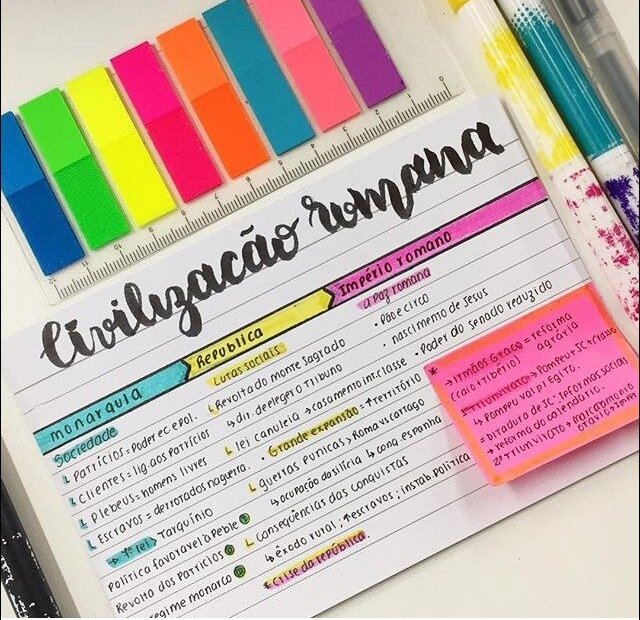 Civilização romana
monarquia
Sociedade
Patrícios = poder ec e pol.
Clientes = lig. aos patrícios
Plebeus = homens livres
Escravos = derrotados na guerra.
→ 7º rei → Tarquínio
Política favorável à Plebe
Revolta dos Patrícios
regime monarco
República
Lutas sociais
Revolta do monte Sagrado
↳ dir. de eleger o Tribuno
lei canuleia → casamento int. classe
• Grande expansão = ↑ território
guerras púnicas > Roma vs Cartago
↳ ocupação da silícia ↳ conq. espanha
Consequências das conquistas
↳ êxodo rural; ↑ escravos; instab. política
*Crise da república.
Império romano
a paz romana
• Pão e circo
• nascimento de Jesus
• Poder do senado reduzido
* → Irmãos Graco = reforma
(caio e tibério) agrária
* 1º Triunvirato → Pompeu + JC + Crasso
↳ Pompeu vai p/ Egito.
= Ditadura de JC: reformas sociais
→ reforma do calendário.
2º Triunvirato →
10 9 8 7 6 5 4 3 2 1 0